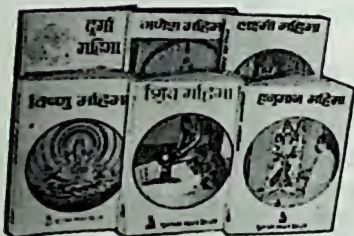 दुर्गा
महिमा
गणेश महिमा
लक्ष्मी महिमा
विष्णु महिमा
शिव महिमा
हनुमान महिमा